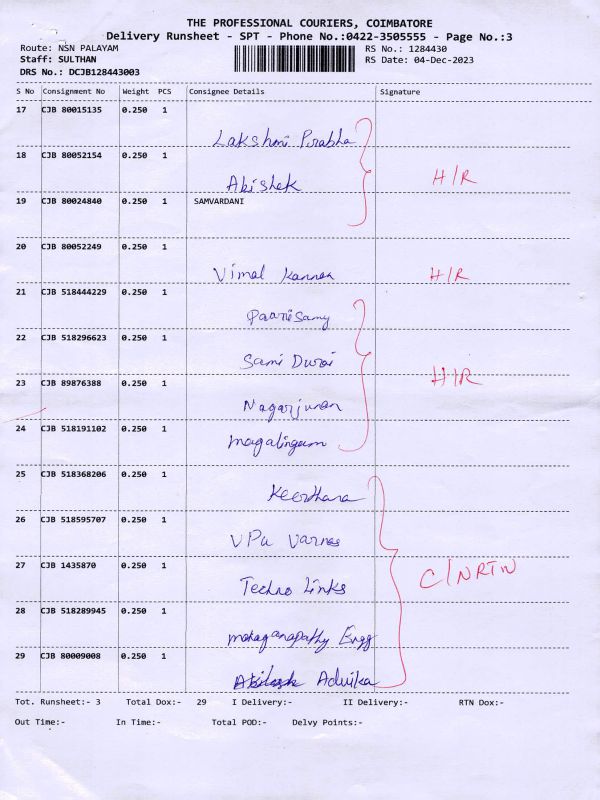 THE PROFESSIONAL COURIERS, COIMBATORE
Delivery Runsheet - SPT - Phone No.:0422-3505555 - Page No.:3
Route: NSN PALAYAM RS No.: 1284430
Staff: SULTHAN RS Date: 04-Dec-2023
DRS No.: DCJB128443003
S No Consignment No Weight PCS Consignee Details Signature
17 CJB 80015135 0.250 1
Lakshmi Prabha
18 CJB 80052154 0.250 1
Abishek H/R
19 CJB 80024840 0.250 1 SAMVARDANI
20 CJB 80052249 0.250 1
Vimal Kannan H/R
21 CJB 518444229 0.250 1
Paarisamy
22 CJB 518296623 0.250 1
Sami Durai
H/R
23 CJB 89876388 0.250 1
Nagarjunan
24 CJB 518191102 0.250 1
Magalingam
25 CJB 518368206 0.250 1
Keerthana
26 CJB 518595707 0.250 1
VPu Varnas
27 CJB 1435870 0.250 1
C/NRTN
Techno Links
28 CJB 518289945 0.250 1
Mahaganapathy Engg
29 CJB 80009008 0.250 1
Advika
Tot. Runsheet:- 3 Total Dox:- 29 I Delivery:- II Delivery:- RTN Dox:-
Out Time:- In Time:- Total POD:- Delvy Points:-